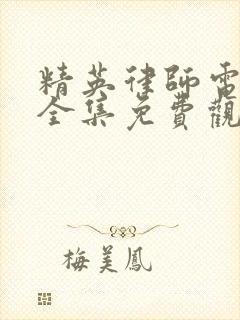 精英律師電
全集免費觀
梅美鳳